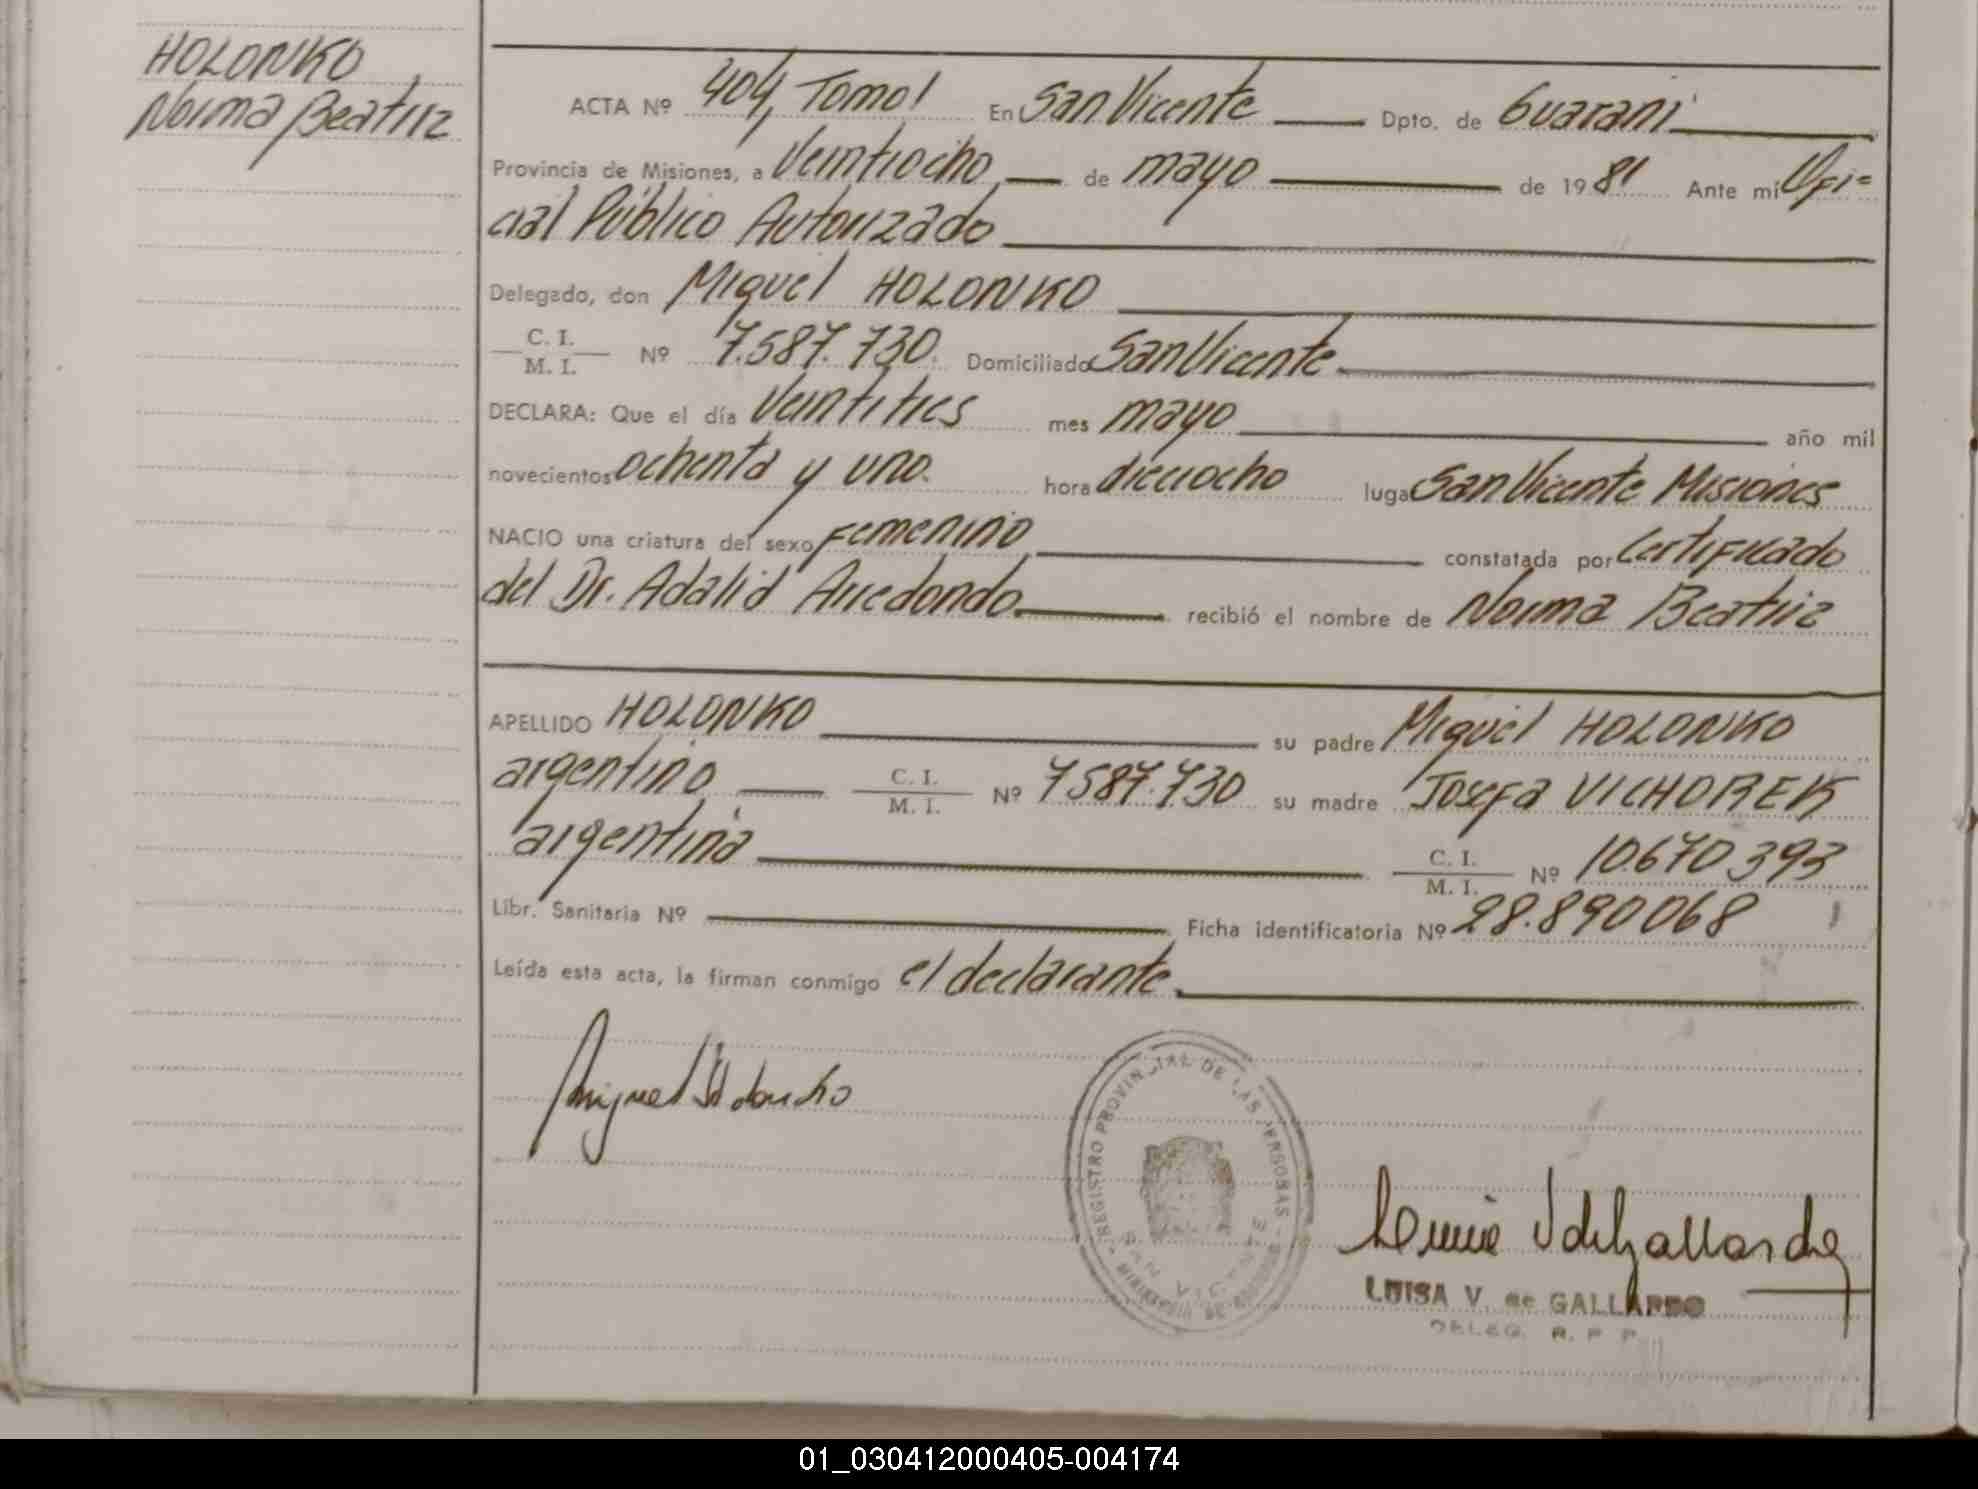 HOLONKO
Norma Beatriz
ACTA Nº 404, Tomo I En San Vicente Dpto. de Guaraní
Provincia de Misiones, a Veintiocho de mayo de 1981 Ante mí Ofi-
cial Público Autorizado
Delegado, don Miguel HOLONKO
C. I.
M. I. Nº 7.587.730. Domiciliado San Vicente
DECLARA: Que el día Veintitres mes mayo año mil
novecientos ochenta y uno. hora dieciocho lugar San Vicente Misiones
NACIO una criatura del sexo Femenino constatada por Certificado
del Dr. Adalid Arredondo recibió el nombre de Norma Beatriz
APELLIDO HOLONKO su padre Miguel HOLONKO
argentino C. I.
M. I. Nº 7587.730 su madre Josefa VICHOREK
argentina C. I.
M. I. Nº 10.670.393
Libr. Sanitaria Nº Ficha identificatoria Nº 28.890068
Leída esta acta, la firman conmigo el declarante
Miguel Holonko
REGISTRO PROVINCIAL DE LAS PERSONAS
SAN VICENTE
LUISA V. de GALLARDO
DELEG. R. P. P.
01_030412000405-004174